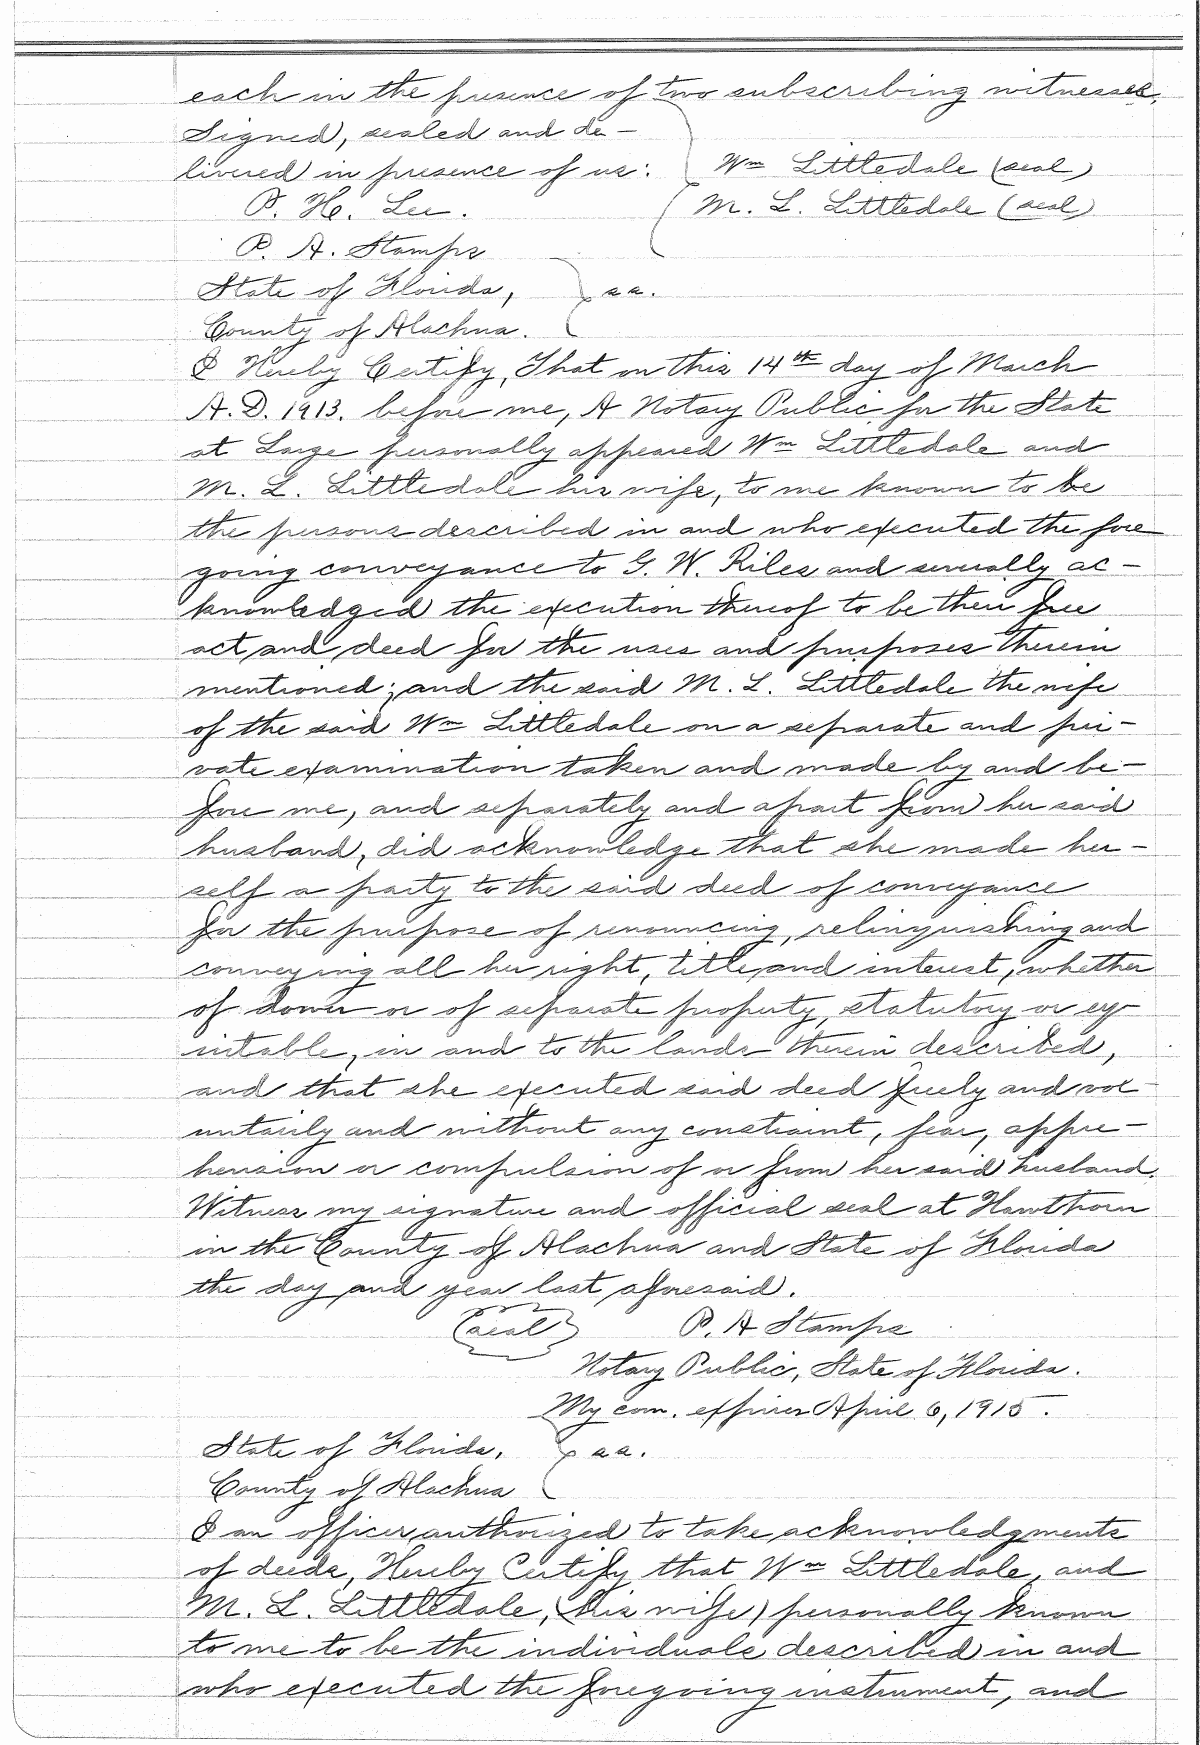 each in the presence of two subscribing witnesses.
Signed, sealed and de-
livered in presence of us: Wm Littledale (seal)
P. H. Lee. M. L. Littledale (seal)
P. A. Stamps
State of Florida, ss.
County of Alachua.
I Hereby Certify, That on this 14th day of March
A.D. 1913. before me, A Notary Public for the State
at Large personally appeared Wm Littledale and
M. L. Littledale his wife, to me known to be
the persons described in and who executed the fore
going conveyance to G. W. Riles and severally ac-
knowledged the execution thereof to be their free
act and deed for the uses and purposes therein
mentioned; and the said M. L. Littledale the wife
of the said Wm Littledale on a separate and pri-
vate examination taken and made by and be-
fore me, and separately and apart from her said
husband, did acknowledge that she made her-
self a party to the said deed of conveyance
for the purpose of renouncing, relinquishing and
conveying all her right, title and interest, whether
of dower or of separate property, statutory or eq-
uitable, in and to the lands therein described,
and that she executed said deed freely and vol
untarily and without any constraint, fear, appre-
hension or compulsion of or from her said husband.
Witness my signature and official seal at Hawthorn
in the County of Alachua and State of Florida
the day and year last aforesaid.
(seal) P. A Stamps
Notary Public, State of Florida.
My com. expires April 6, 1915.
State of Florida, ss.
County of Alachua
I an officer authorized to take acknowledgments
of deeds, Hereby Certify that Wm Littledale, and
M. L. Littledale, (his wife) personally known
to me to be the individuals described in and
who executed the foregoing instrument, and